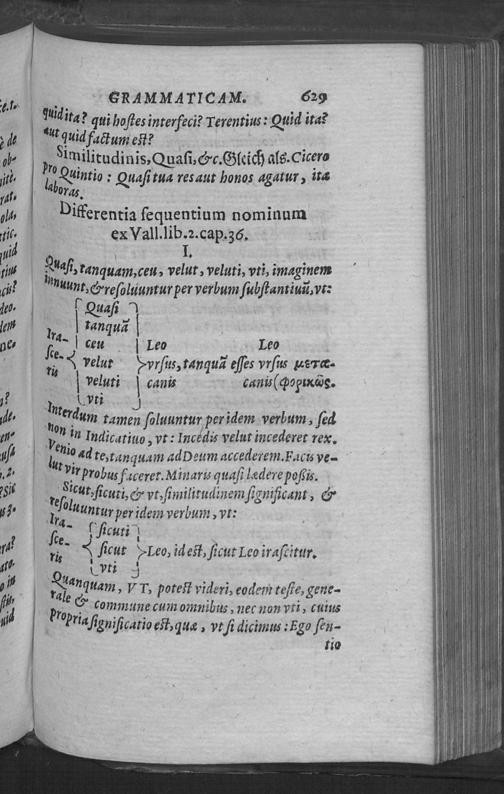 GRAMMATICAM. 629
quid ita? qui hostes interfeci? Terentius: Quid ita?
aut quid factum est?
Similitudinis, Quasi, &c. Gleich als. Cicero
pro Quintio: Quasi tua res aut honos agatur, ita
laboras.
Differentia sequentium nominum
ex Vall. lib. 2. cap. 36.
I.
Quasi, tanquam, ceu, velut, veluti, vti, imaginem
innuunt, & resoluuntur per verbum substantiuũ, vt:
Quasi
tanquã
Ira- ceu Leo Leo
sce- velut vrsus, tanquã esses vrsus μετα-
ris veluti canis canis (φορικῶς.
vti
Interdum tamen soluuntur per idem verbum, sed
non in Indicatiuo, vt: Incedis velut incederet rex.
Venio ad te, tanquam ad Deum accederem. Facis ve-
lut vir probus faceret. Minaris quasi lædere possis.
Sicut, sicuti, & vt, similitudinem significant, &
resoluuntur per idem verbum, vt:
Ira- sicuti
sce- sicut Leo, id est, sicut Leo irascitur.
ris vti
Quanquam, VT, potest videri, eodem teste, gene-
rale & commune cum omnibus, nec non vti, cuius
propria significatio est, quæ, vt si dicimus: Ego sen-
tio